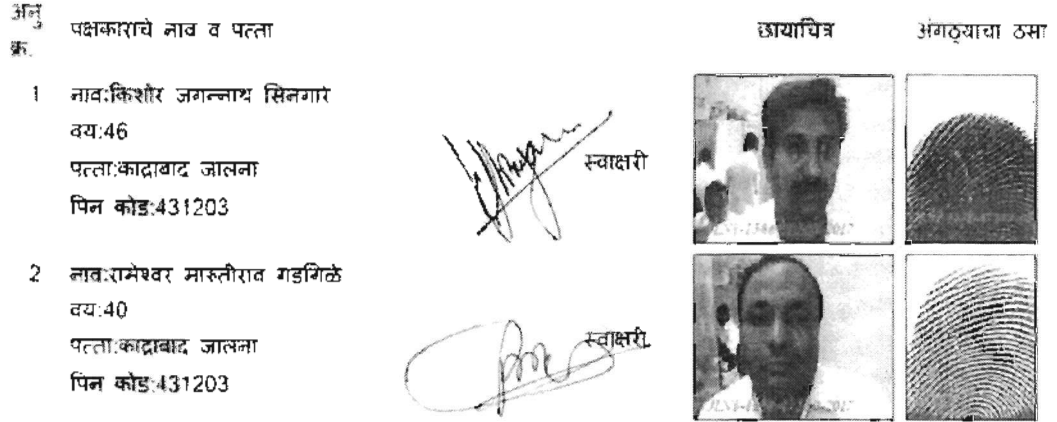 अनु क्र.
पक्षकाराचे नाव व पत्ता
छायाचित्र
अंगठ्याचा ठसा
1
नाव:किशोर जगन्नाथ सिनगारे
वय:46
पत्ता:काद्राबाद जालना
पिन कोड:431203
स्वाक्षरी
2
नाव:रामेश्वर मारुतीराव गडगिळे
वय:40
पत्ता:काद्राबाद जालना
पिन कोड:431203
स्वाक्षरी